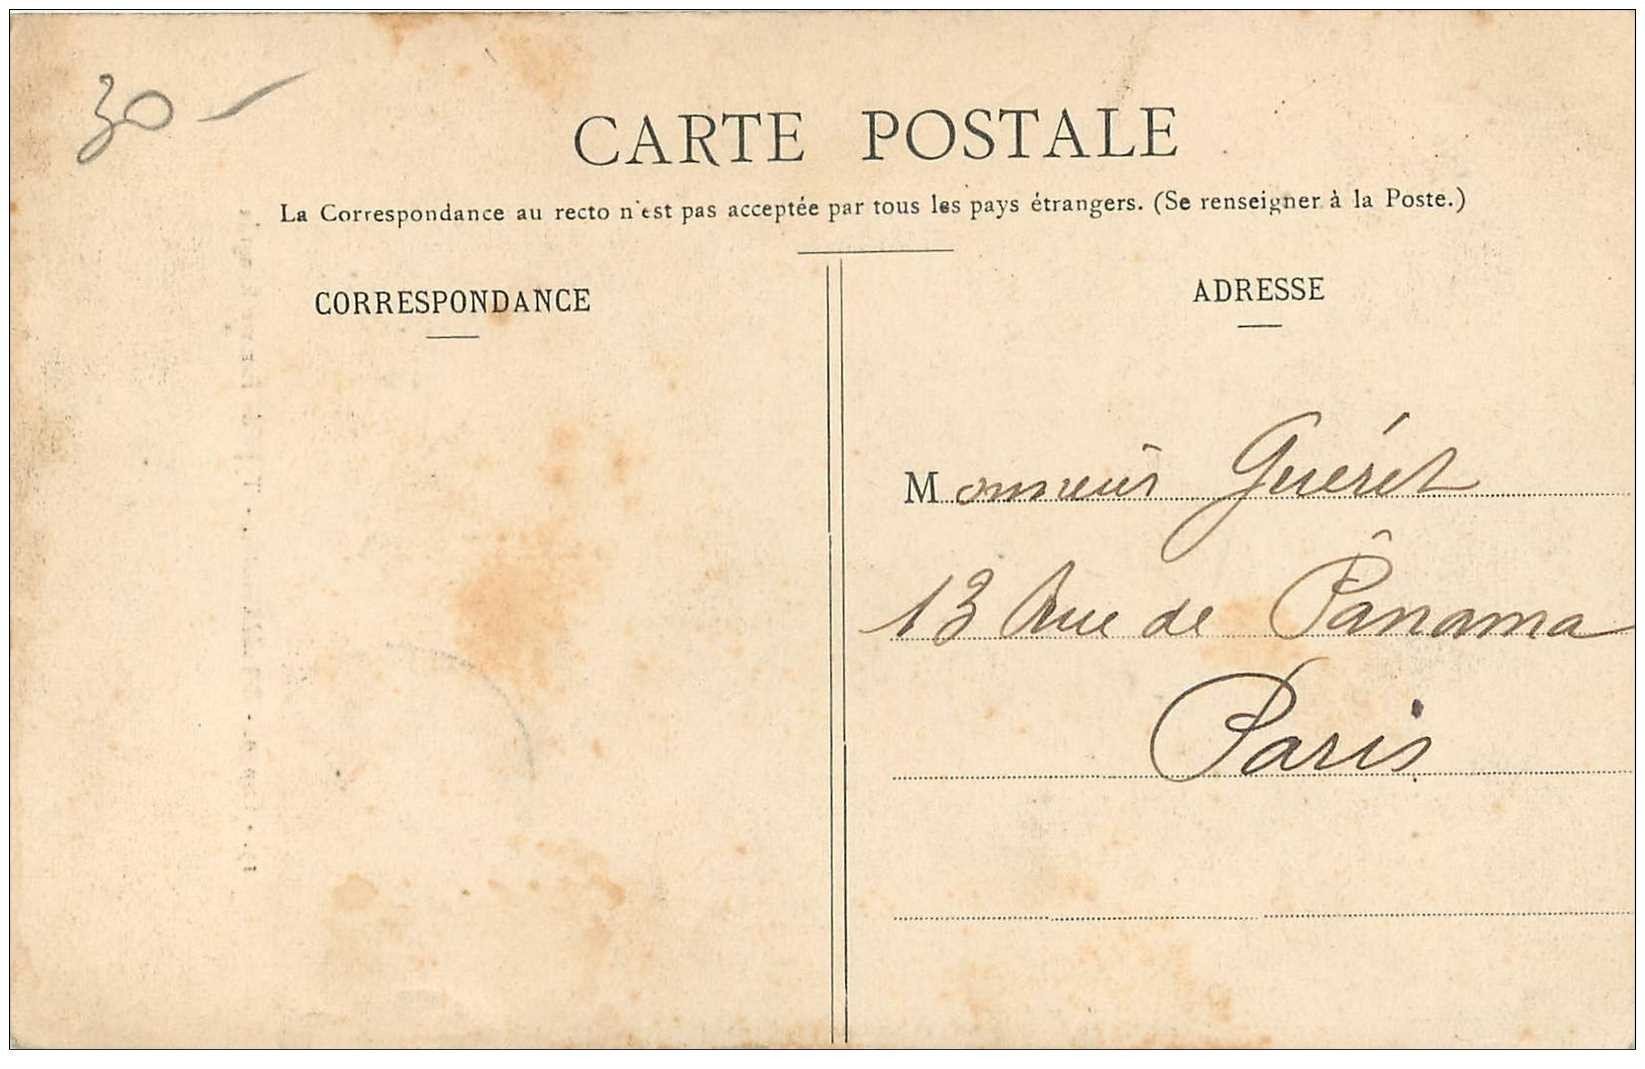 30 -
CARTE POSTALE
La Correspondance au recto n'est pas acceptée par tous les pays étrangers. (Se renseigner à la Poste.)
CORRESPONDANCE
ADRESSE
Monsieur Guéret
13 Rue de Panama
Paris